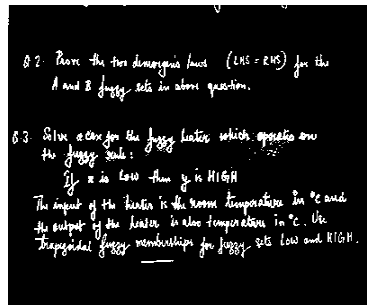 Q 2. Prove the two demorgan's laws (LHS = RHS) for the
A and B fuzzy sets in above question.
Q 3. Solve a case for the fuzzy heater which operates on
the fuzzy rule:
If x is low then y is HIGH
The input of the heater is the room temperature in °C and
the output of the heater is also temperature in °C. Use
trapezoidal fuzzy memberships for fuzzy sets low and HIGH.